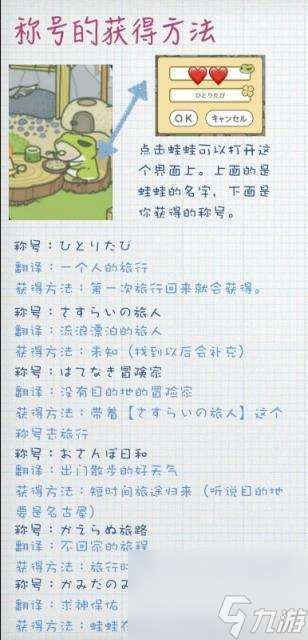 称号的获得方法
ひとりたび
OK キャンセル
点击蛙蛙可以打开这
个界面上。上面的是
蛙蛙的名字，下面是
你获得的称号。
称号：ひとりたび
翻译：一个人的旅行
获得方法：第一次旅行回来就会获得。
称号：さすらいの旅人
翻译：流浪漂泊的旅人
获得方法：未知（找到以后会补充）
称号：はてなき冒険家
翻译：没有目的地的冒险家
获得方法：带着【さすらいの旅人】这个
称号去旅行
称号：おさんぽ日和
翻译：出门散步的好天气
获得方法：短时间旅途归来（听说目的地
要是名古屋）
称号：かえらぬ旅路
翻译：不回家的旅程
获得方法：旅行时
称号：かみだのみ
翻译：求神保佑
获得方法：蛙蛙在
九游